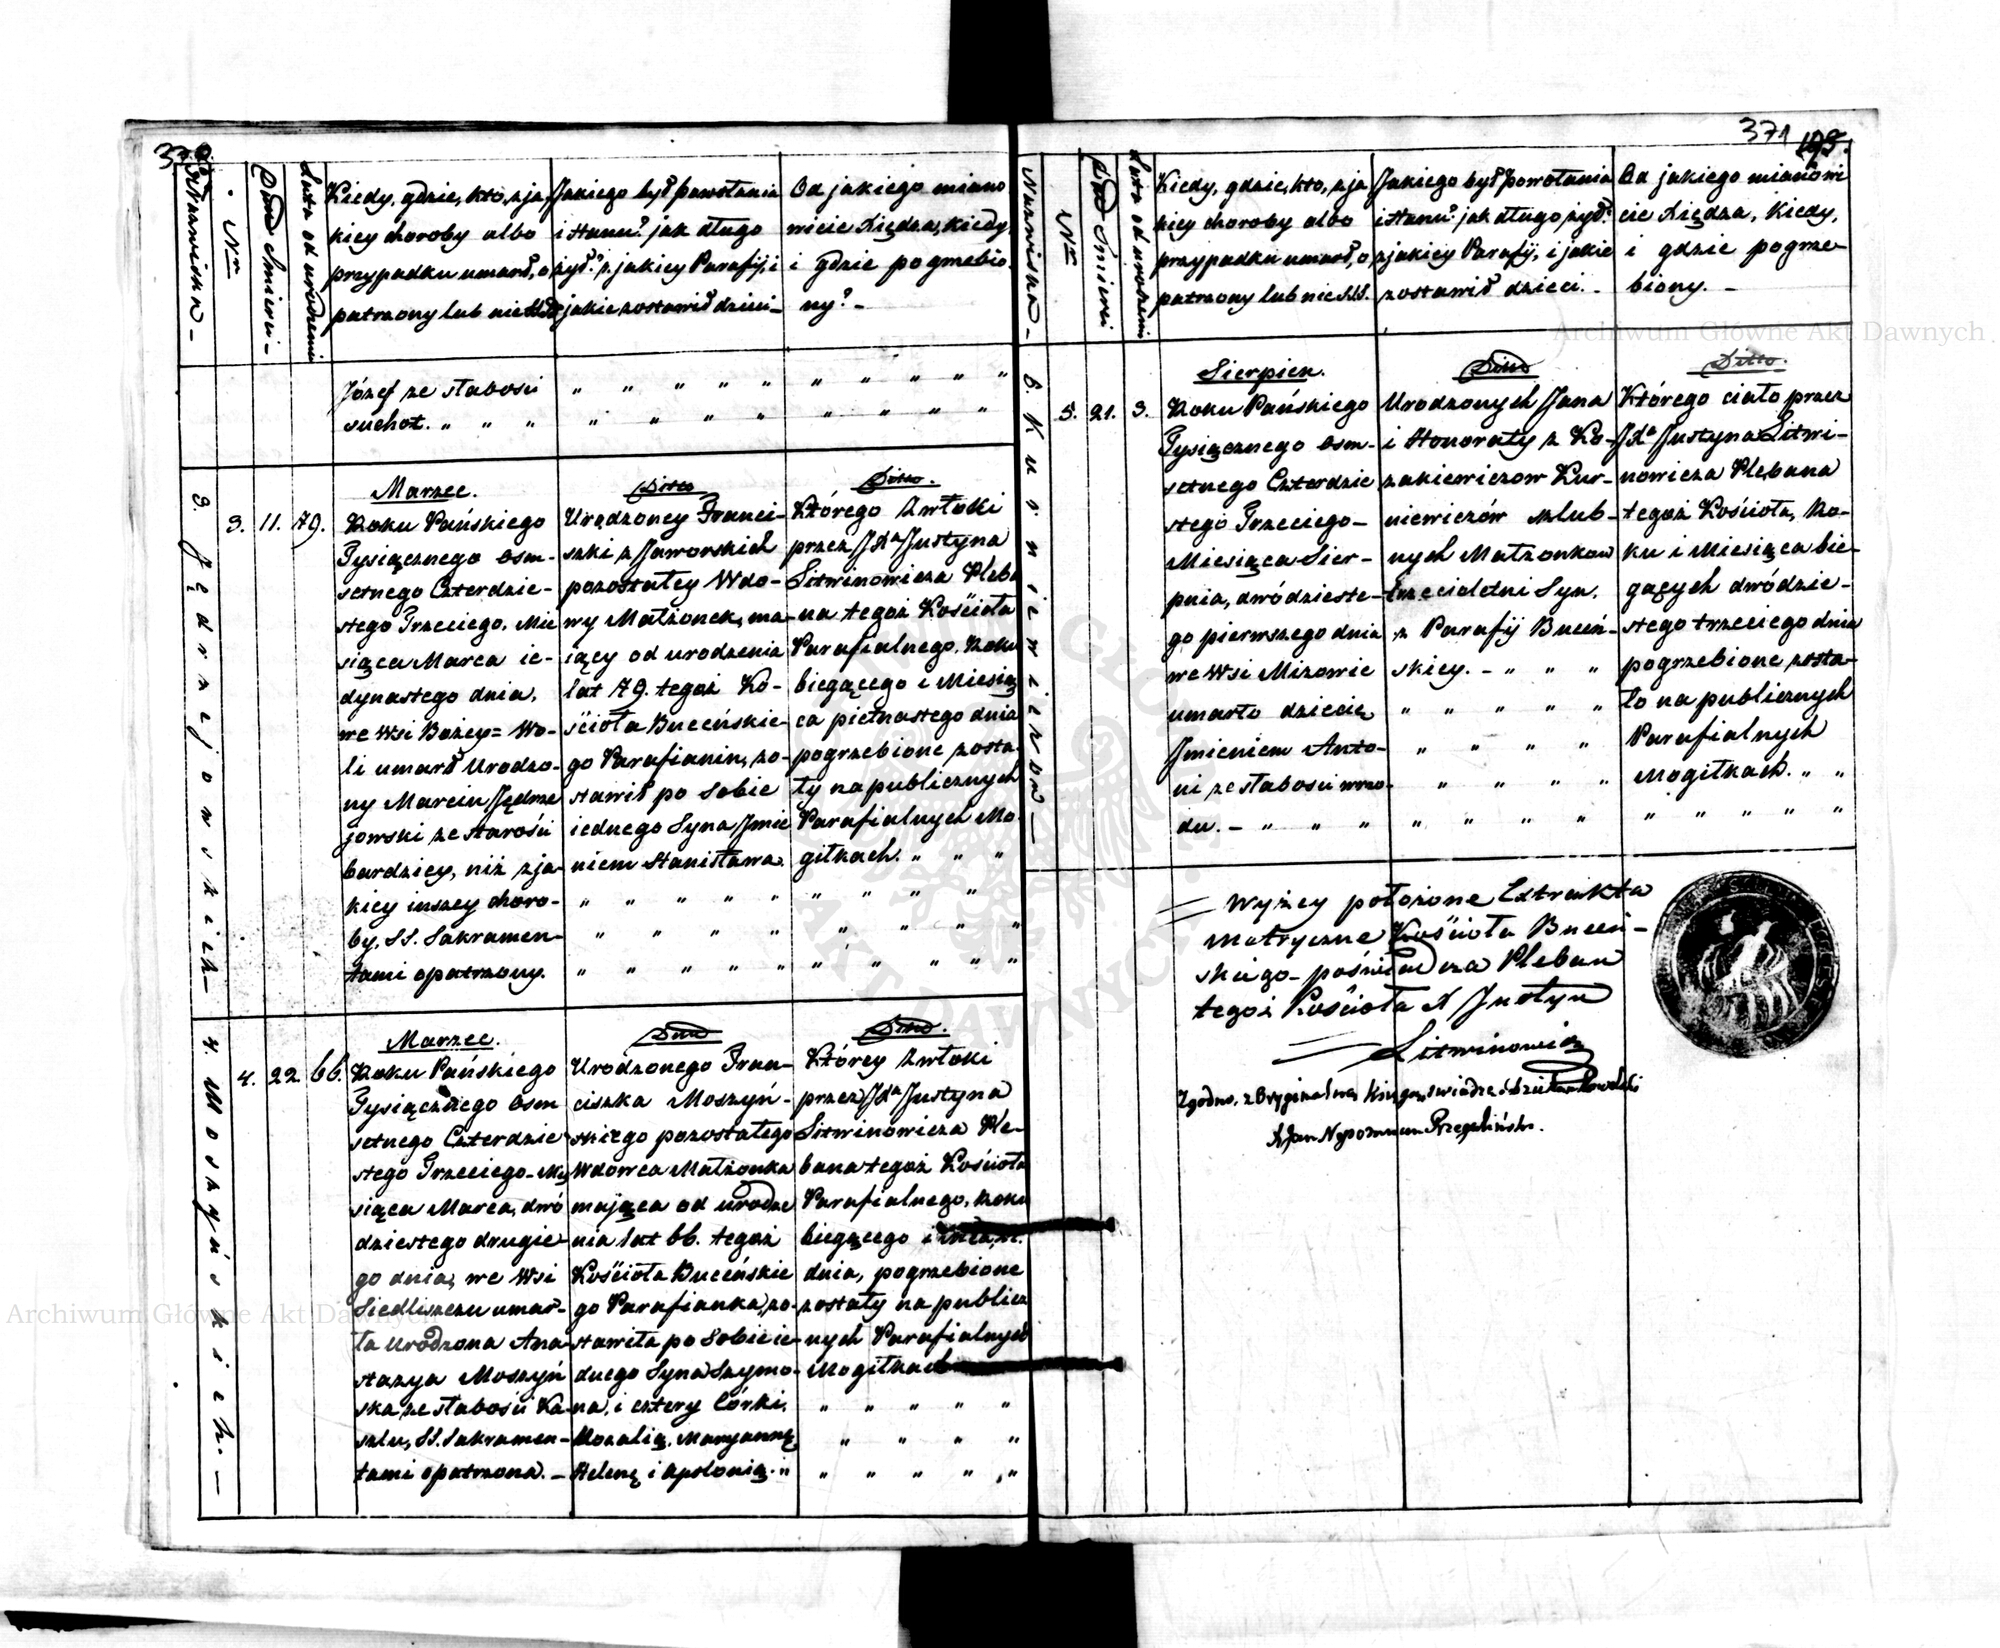 370
Nazwisko –
Nr
Data Śmierci –
Lata od urodzenia
Kiedy, gdzie, kto, z ja
kiey choroby albo
przypadku umarł, o
patrzony lub nie SSS.
Jakiego był powołania
i stanu? jak długo
żył? z jakiey Parafij, i
jakie zostawił dzieci –
Od jakiego miano
wicie Xiędza, kiedy,
i gdzie pogrzebio
ny? –
Józef ze słabości " " " " " " " " " "
suchot. " " " " " " " " " " "
3. Jędrzejowskich –
3. 11. 79.
Marzec.
Roku Pańskiego
Tysiącznego Osm–
setnego Czterdzie–
stego Trzeciego. Mie
siąca Marca ie–
dynastego dnia,
we Wsi Bożey= Wo–
li umarł Urodzo–
ny Marcin Jędrze
jowski ze starości
bardziey, niż z ja–
kiey inszey choro–
by, SS. Sakramen–
tami opatrzony.
Ditto
Urodzoney Franci–
szki z Jaworskich
pozostałey Wdo–
wy Małżonek, ma–
iący od urodzenia
lat 79. tegoż Ko–
ścioła Buceńskie–
go Parafianin, zo–
stawił po sobie
iednego Syna Jmie
niem Stanisława.
Ditto.
Którego Zwłoki
przez JXa Justyna
Litwinowicza Pleba
na tegoż Kościoła
Parafialnego, Roku
biegącego i Miesią
ca pietnastego dnia
pogrzebione zosta–
ły na publicznych
Parafialnych Mo–
giłkach. " " "
4. Moszyńskich. –
4. 22. 66.
Marzec.
Roku Pańskiego
Tysiącznego Osm
setnego Czterdzie
stego Trzeciego – Mie
siąca Marca, dwó
dziestego drugie–
go dnia, we Wsi
Siedliszczu umar–
ła Urodzona Ana–
stazya Moszyń
ska ze słabości Ka–
szlu, SS. Sakramen–
tami opatrzona. –
Ditto
Urodzonego Fran–
ciszka Moszyń–
skiego pozostałego
Wdowca Małżonka
mająca od urodze
nia lat 66. tegoż
Kościoła Buceńskie
go Parafianka, zo–
stawiła po sobie ie–
dnego Syna Szymo–
na, i cztery Córki,
Rozalią, Maryannę,
Helenę i Apolonią. "
Ditto.
Którey Zwłoki
przez JXa Justyna
Litwinowicza Ple–
bana tegoż Kościoła
Parafialnego, Roku
biegącego i
dnia, pogrzebione
zostały na publicz
nych Parafialnych
Mogiłkach
371
Nazwisko –
Nr
Data Śmierci
Lata od urodzenia
Kiedy, gdzie, kto, z ja
kiey choroby albo
przypadku umarł, o
patrzony lub nie SSS.
Jakiego był powołania
i stanu? jak długo żył?
z jakiey Parafij, i jakie
zostawił dzieci. –
Od jakiego mianowi
cie Xiędza, kiedy,
i gdzie pogrze–
biony. –
5. Kurniewiczow –
5. 21. 3.
Sierpien.
Roku Pańskiego
Tysiącznego Osm–
setnego Czterdzie
stego Trzeciego –
Miesiąca Sier–
pnia, dwódzieste–
go pierwszego dnia
we Wsi Mizowie
umarło dziecię
Jmieniem Anto–
ni ze słabości wrzo–
du. – " " "
Ditto
Urodzonych Jana
i Honoraty z Ko–
zakiewiczow Kur–
niewiczów szlub–
nych Małżonkow
trzecioletni Syn,
z Parafij Buceń–
skiey. – " " "
Ditto.
Którego ciało przez
JXa Justyna Litwi–
nowicza Plebana
tegoż Kościoła, Ro–
ku i Miesiąca bie–
gących dwódzie–
stego trzeciego dnia
pogrzebione zosta–
ło na publicznych
Parafialnych
Mogiłkach. " "
Wyżey położone Extrakta
metryczne Kościoła Buceń–
skiego – poświadcza Pleban
tegoż Kościoła X Justyn
Litwinowicz
Zgodno. z Oryginalną Księgą, świadczę Dziekan Kowelski
X Jan Nepomucen Przegaliński.
Archiwum Główne Akt Dawnych
Archiwum Główne Akt Dawnych